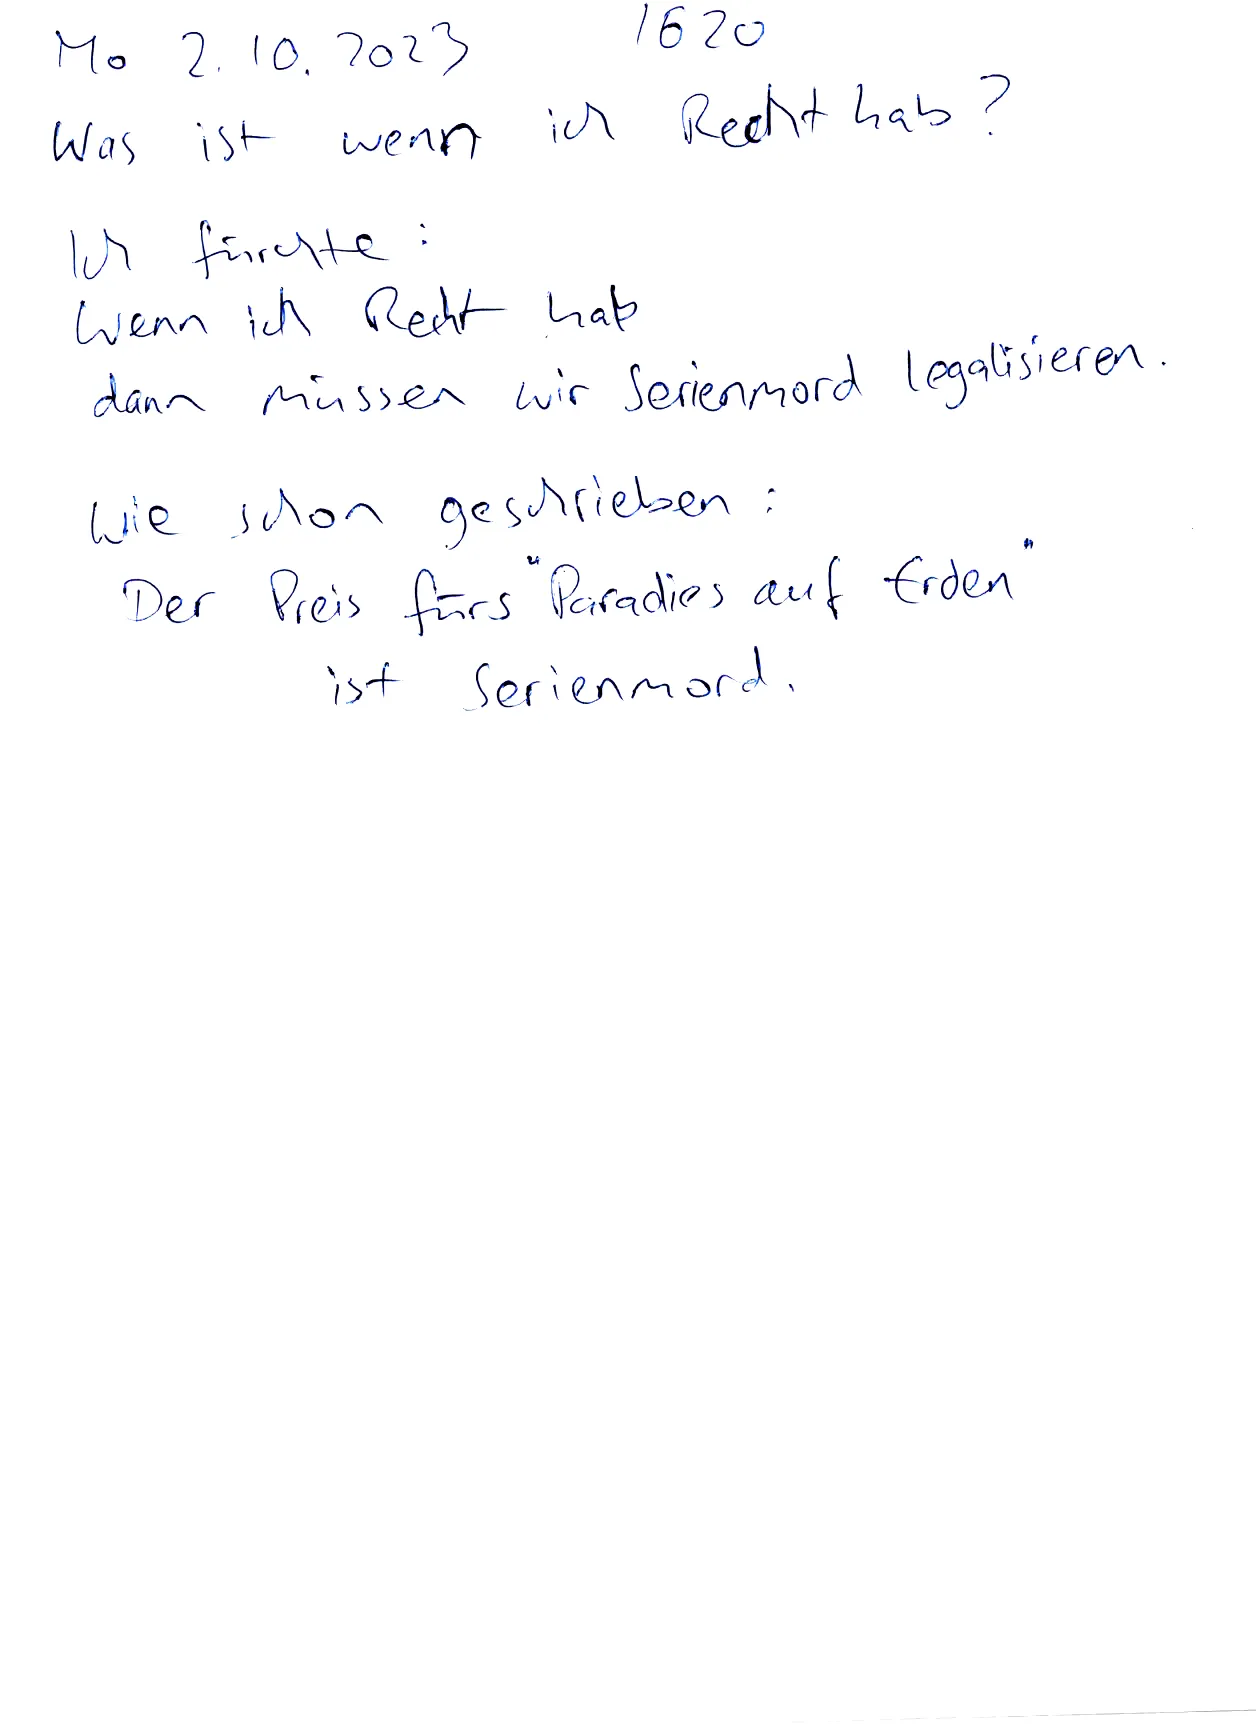 Mo 2.10.2023 1620
Was ist wenn ich Recht hab?
Ich fürchte:
Wenn ich Recht hab
dann müssen wir Serienmord legalisieren.
Wie schon geschrieben:
Der Preis fürs "Paradies auf Erden"
ist Serienmord.